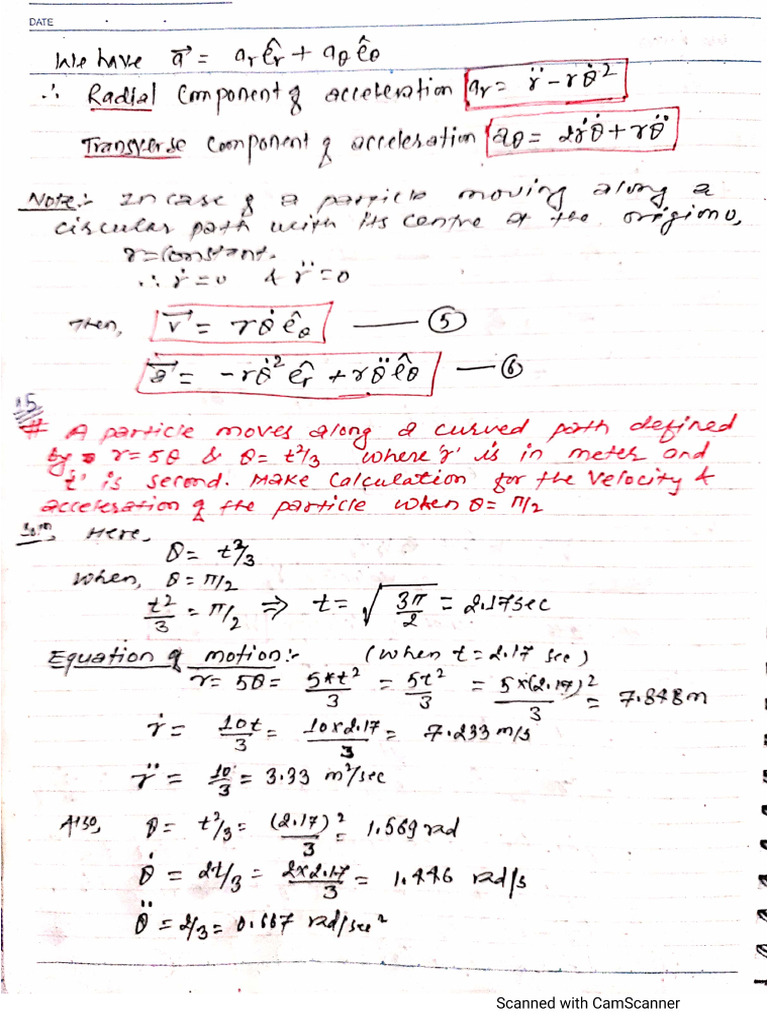 DATE
We have a⃗ = aᵣêᵣ + a_θ ê_θ
∴ Radial component of acceleration aᵣ = r̈ - rθ̇²
Transverse component of acceleration a_θ = 2ṙθ̇ + rθ̈
Note:- In case of a particle moving along a
circular path with its centre at the origin O,
r = constant.
∴ ṙ = 0 & r̈ = 0
Then, v⃗ = rθ̇ ê_θ —— ⑤
a⃗ = -rθ̇² êᵣ + rθ̈ ê_θ — ⑥
# A particle moves along a curved path defined
by r = 5θ & θ = t²/3 where 'r' is in meter and
't' is second. Make calculation for the velocity &
acceleration of the particle when θ = π/2
Solⁿ, Here,
θ = t²/3
when, θ = π/2
t²/3 = π/2 ⇒ t = √(3π/2) = 2.17 sec
Equation of motion:- (when t = 2.17 sec)
r = 5θ = 5*t²/3 = 5t²/3 = 5×(2.17)²/3 = 7.848 m
ṙ = 10t/3 = 10×2.17/3 = 7.233 m/s
r̈ = 10/3 = 3.33 m²/sec
Also, θ = t²/3 = (2.17)²/3 = 1.569 rad
θ̇ = 2t/3 = 2×2.17/3 = 1.446 rad/s
θ̈ = 2/3 = 0.667 rad/sec²
Scanned with CamScanner